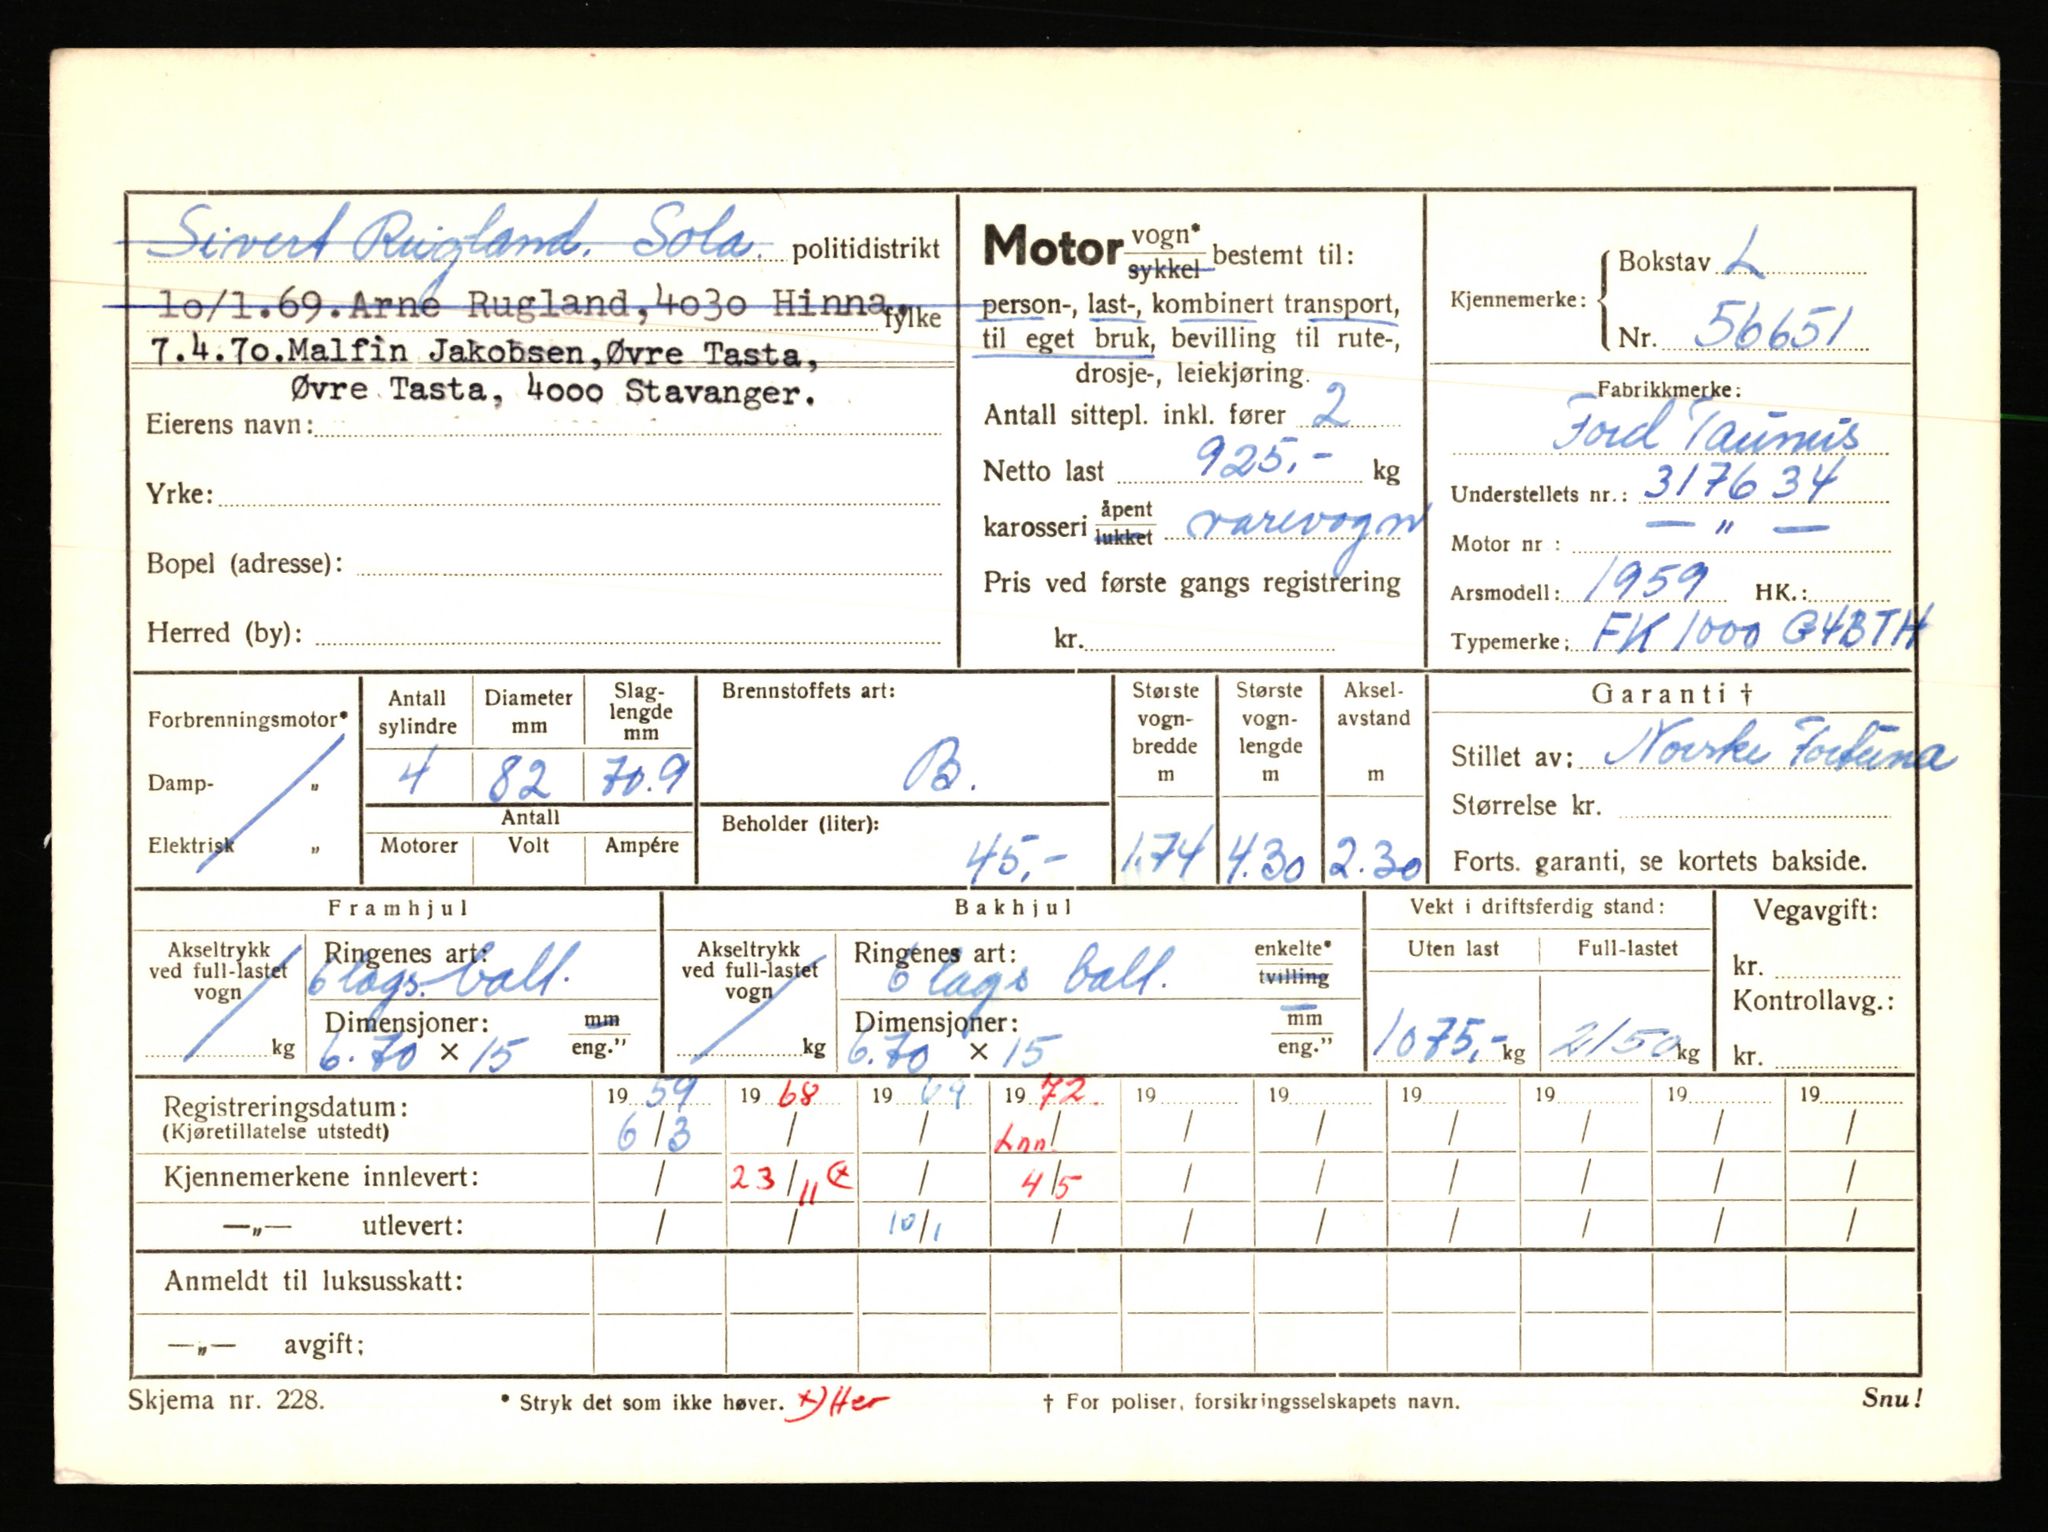 Sivert Rugland. Sola. politidistrikt
10/1.69.Arne Rugland,4030 Hinna, fylke
7.4.70.Malfin Jakobsen,Øvre Tasta,
Øvre Tasta, 4000 Stavanger.
Eierens navn:
Yrke:
Bopel (adresse):
Herred (by):
Motor vogn* sykkel bestemt til:
person-, last-, kombinert transport,
til eget bruk, bevilling til rute-,
drosje-, leiekjøring.
Antall sittepl. inkl. fører 2
Netto last 925,- kg
karosseri åpent lukket varevogn
Pris ved første gangs registrering
kr.
Kjennemerke: Bokstav L
Nr. 56651
Fabrikkmerke:
Ford Taunus
Understellets nr.: 317634
Motor nr : — " —
Arsmodell: 1959 HK.:
Typemerke: FK 1000 G4BTH
Forbrenningsmotor*
Damp- „
Elektrisk „
Antall sylindre 4
Diameter mm 82
Slag-lengde mm 70.9
Antall
Motorer Volt Ampére
Brennstoffets art:
B.
Beholder (liter):
45,-
Største vogn-bredde m 1.74
Største vogn-lengde m 4.30
Aksel-avstand m 2.30
Garanti †
Stillet av: Norske Fortuna
Størrelse kr.
Forts. garanti, se kortets bakside.
Framhjul
Akseltrykk ved full-lastet vogn kg
Ringenes art:
6 lags ball.
Dimensjoner: mm eng."
6.70 × 15
Bakhjul
Akseltrykk ved full-lastet vogn kg
Ringenes art: enkelte* tvilling
6 lags ball.
Dimensjoner: mm eng."
6.70 × 15
Vekt i driftsferdig stand:
Uten last Full-lastet
1075,- kg 2150 kg
Vegavgift:
kr.
Kontrollavg.:
kr.
Registreringsdatum: 19 59 19 68 19 69 19 72. 19 19 19 19 19 19
(Kjøretillatelse utstedt) 6/3 / / Lnn / / / / / / /
Kjennemerkene innlevert: / 23/11 (x / 4/5 / / / / / /
—„— utlevert: / / 10/1 / / / / / / /
Anmeldt til luksusskatt:
—„— avgift:
Skjema nr. 228. * Stryk det som ikke høver. x) Her † For poliser, forsikringsselskapets navn. Snu!